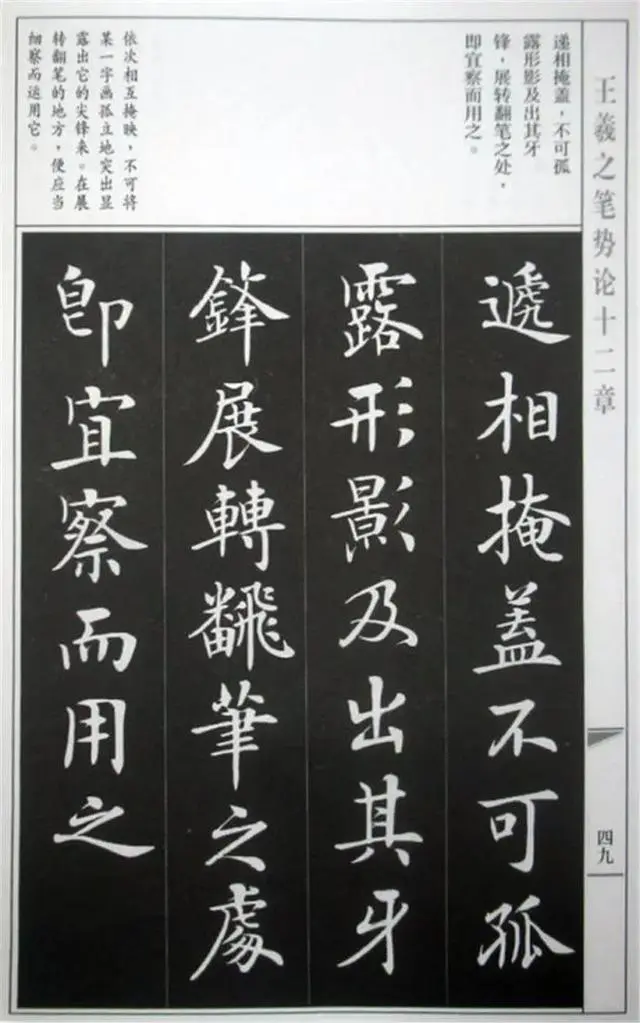 王羲之笔势论十二章
递相掩盖，不可孤
露形影及出其牙
锋，展转翻笔之处，
即宜察而用之。
依次相互掩映，不可将
某一字画孤立地突出显
露出它的尖锋来。在展
转翻笔的地方，便应当
细察而运用它。
遞相掩蓋不可孤
露形影及出其牙
鋒展轉飜筆之處
即宜察而用之
四九